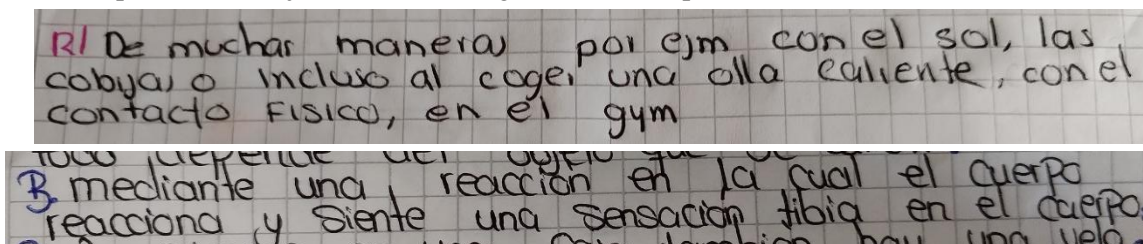 R/ De muchas maneras por ejm con el sol, las
cobyas o incluso al coger una olla caliente, con el
contacto Fisico, en el gym
todo depende del objeto que
B. mediante una reacción en la cual el cuerpo
reacciona y siente una sensación tibia en el cuerpo
hay una